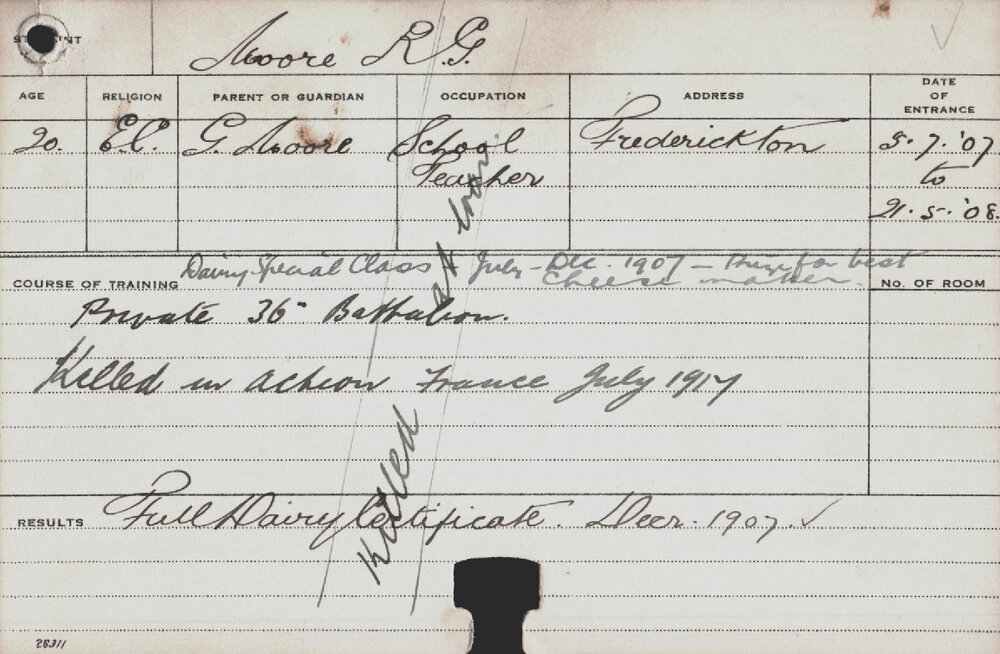 STUDENT
Moore R.G.
AGE
RELIGION
PARENT OR GUARDIAN
OCCUPATION
ADDRESS
DATE OF ENTRANCE
20.
E.C.
G. Moore
School Teacher
Frederickton
5.7.'07
to
21.5.'08.
Dairy Special Class July - Dec. 1907 - Prize for best
cheese maker.
COURSE OF TRAINING
No. OF ROOM
Private 36 Battalion.
Killed in action France July 1917
Killed at war
RESULTS
Full Dairy Certificate. Decr. 1907. ✓
26311